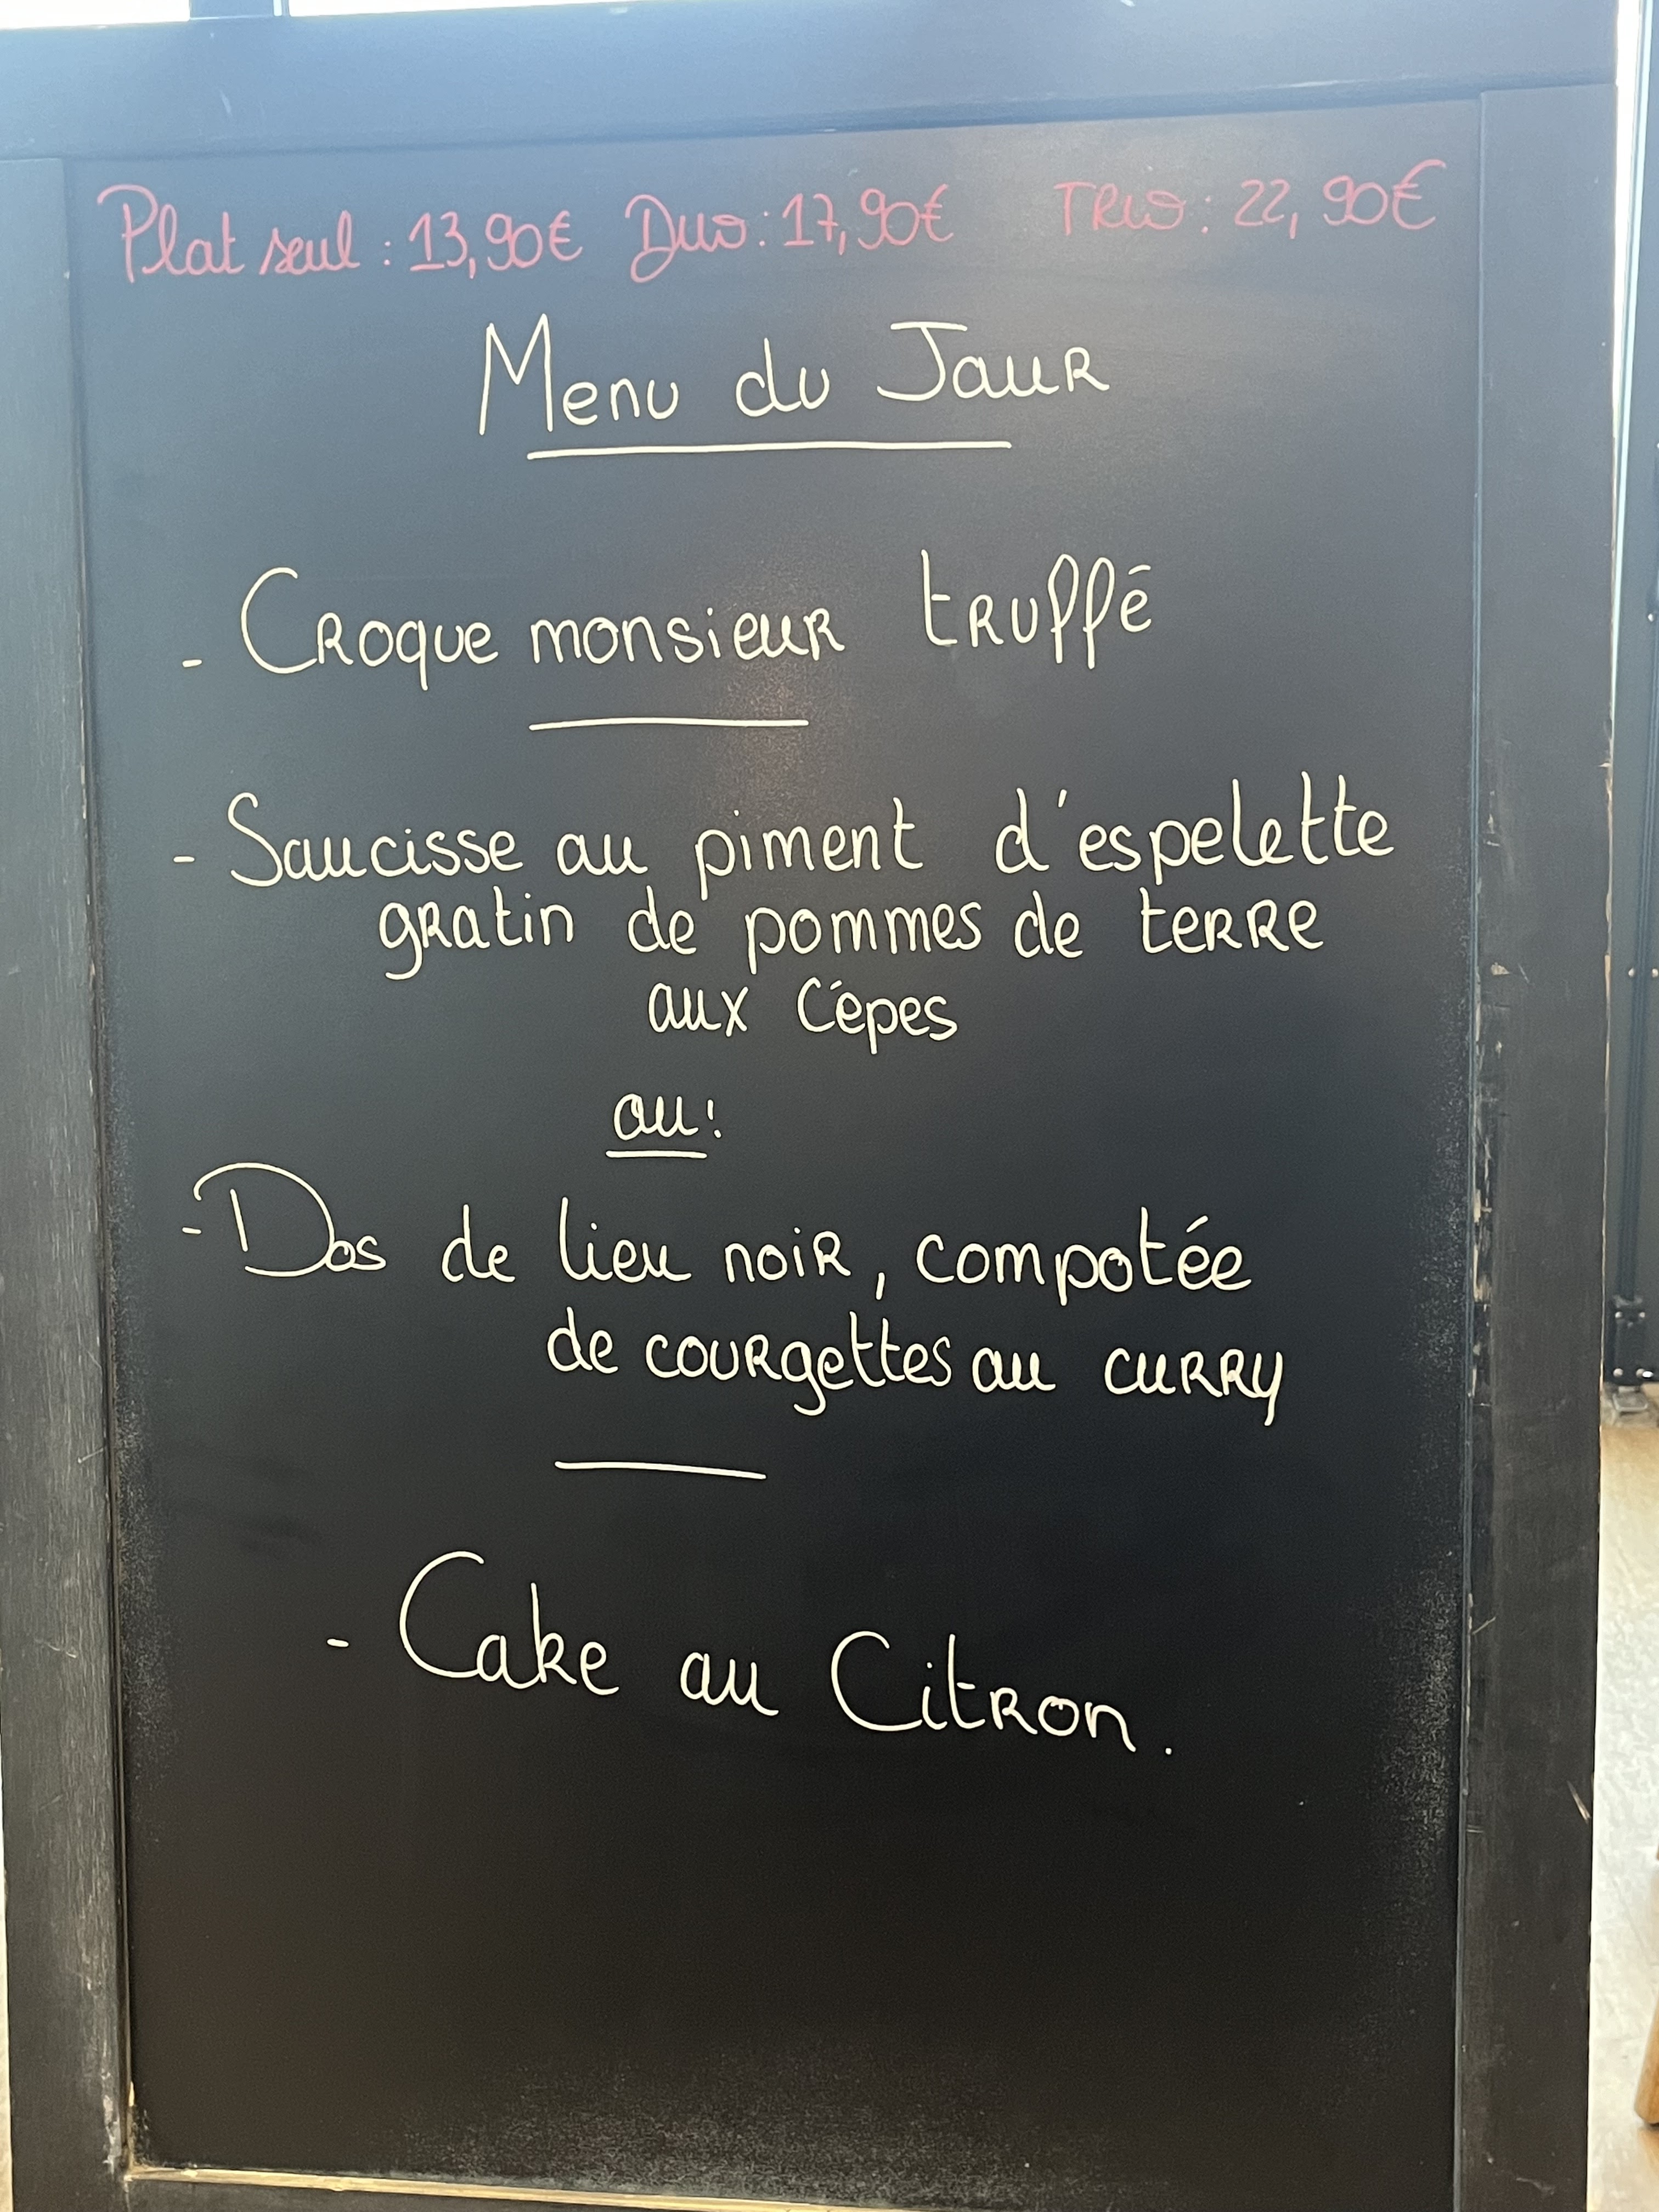 Plat seul : 13,90€ Duo : 17,90€ TRIO : 22,90€
Menu du Jour
- Croque monsieur truffé
- Saucisse au piment d'espelette
gratin de pommes de terre
aux Cépes
ou :
- Dos de lieu noir, compotée
de courgettes au curry
- Cake au Citron.